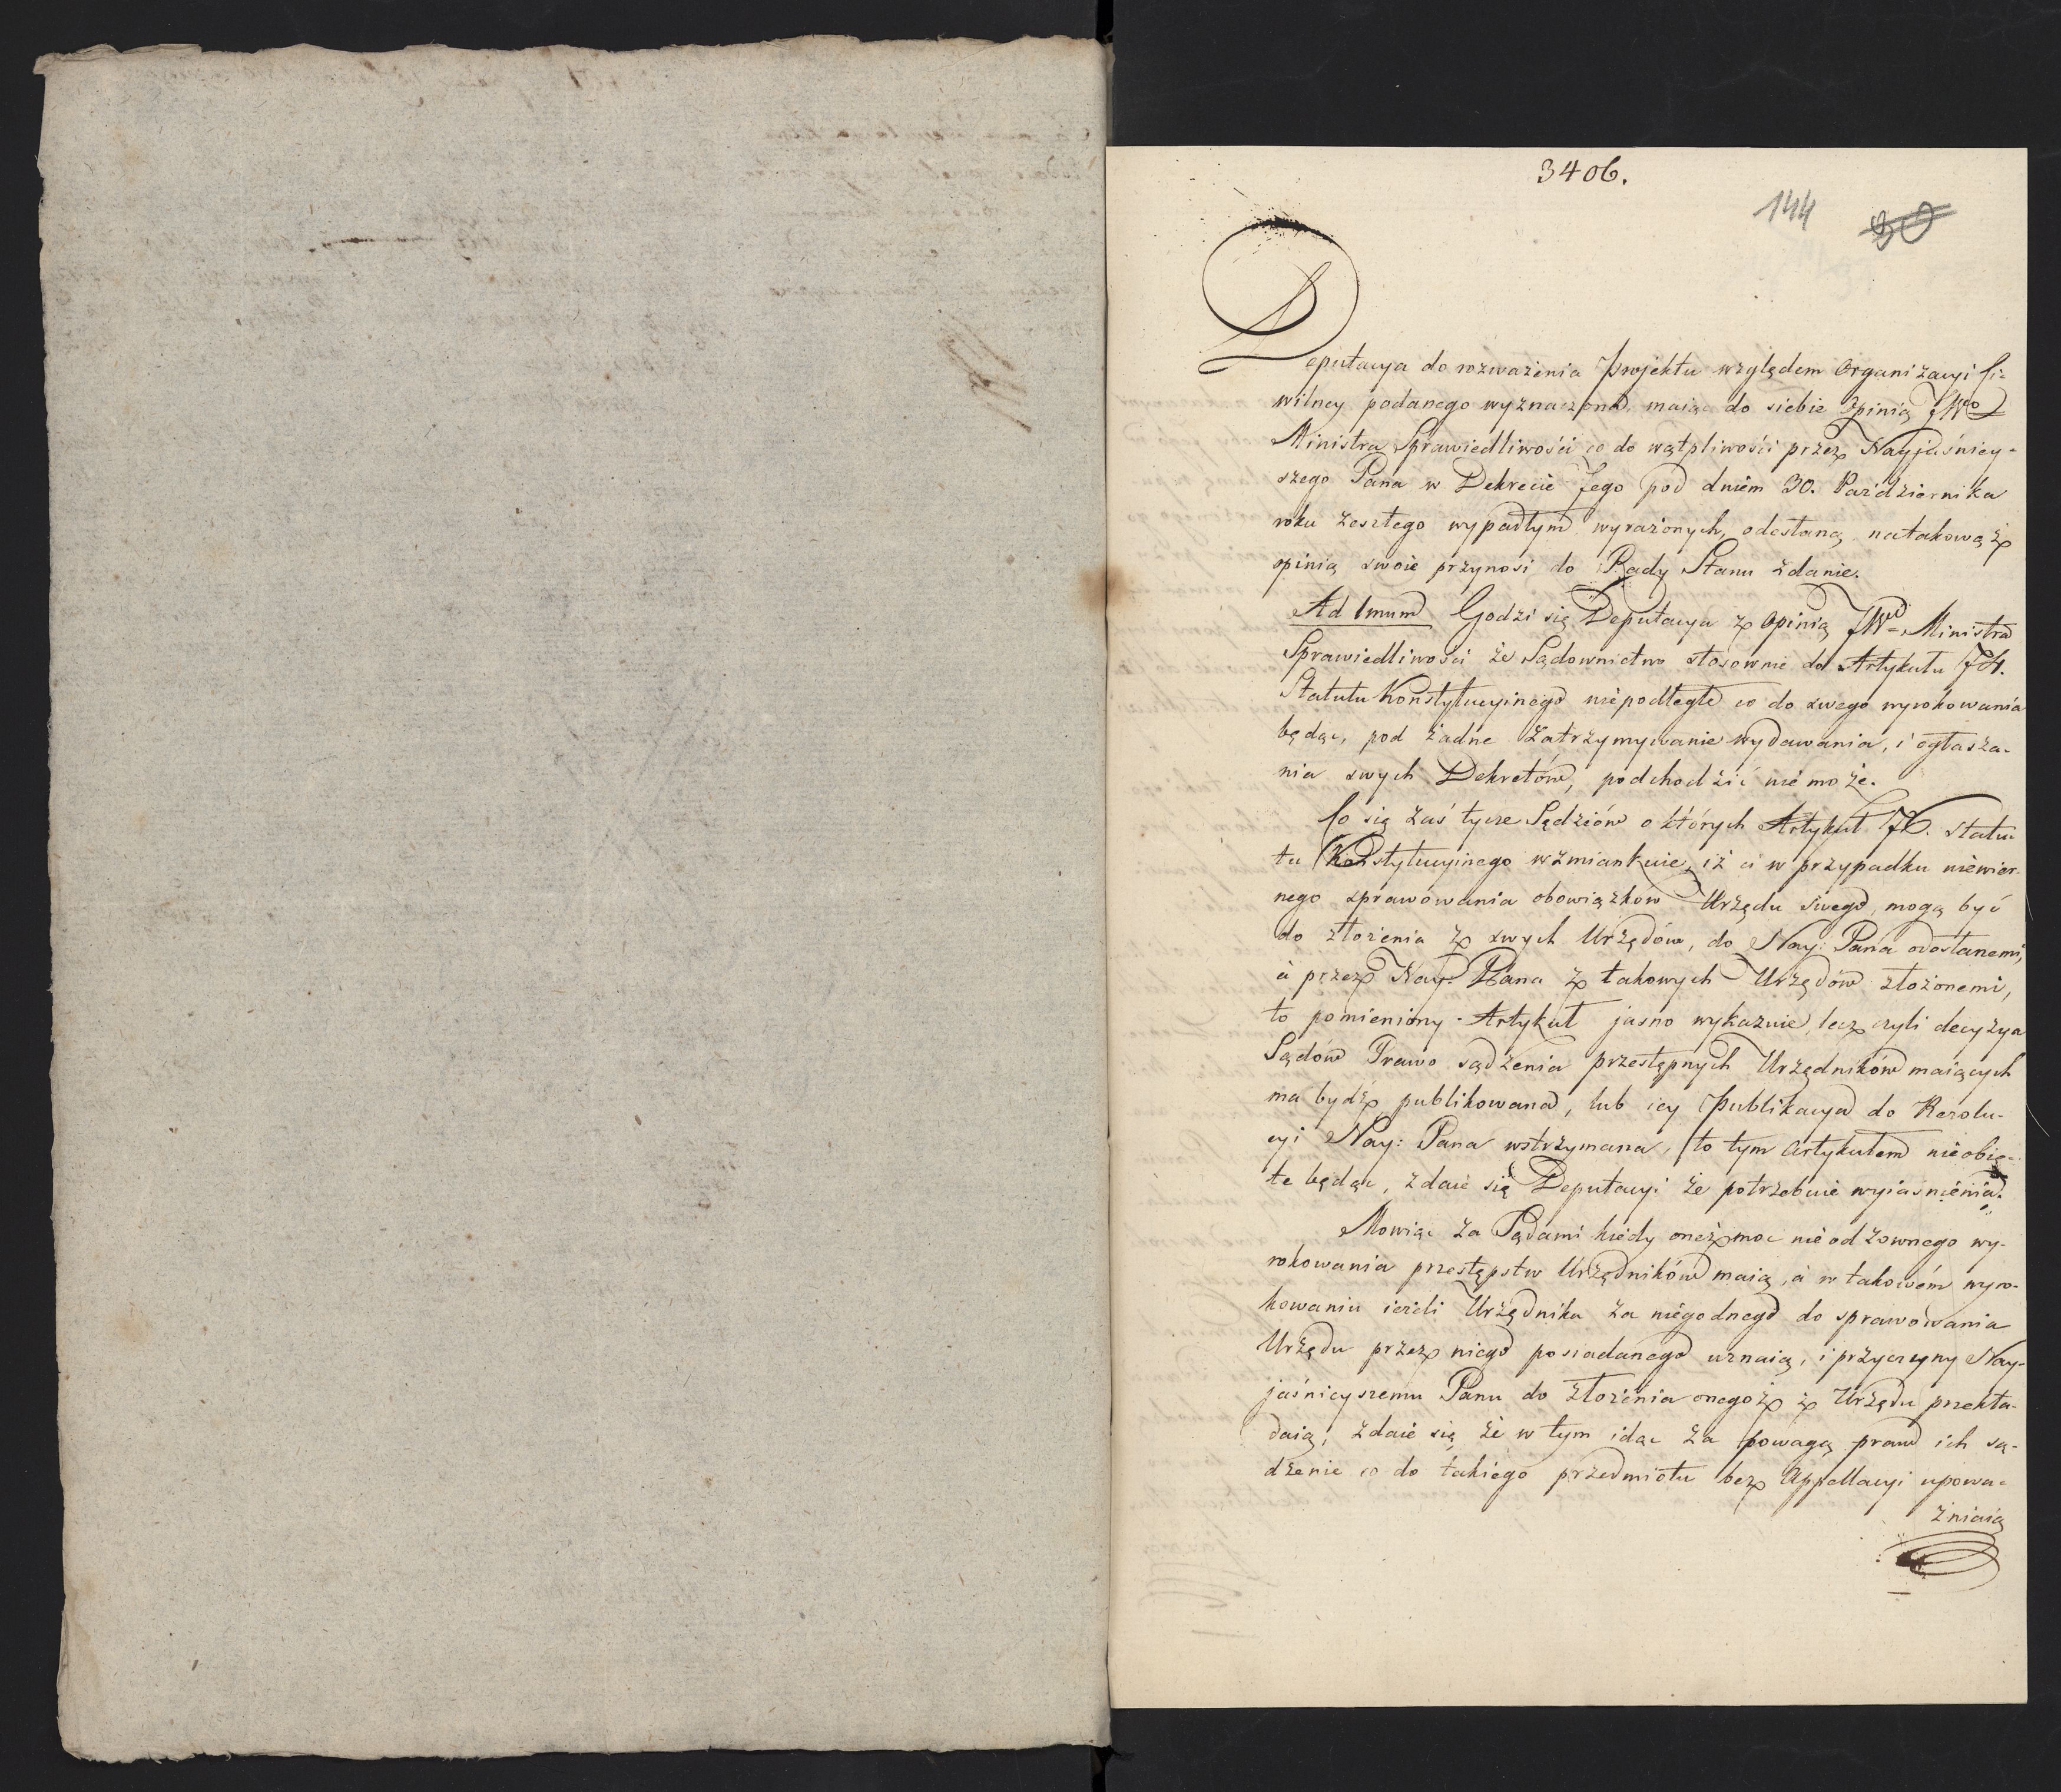 3406.
144 30
Deputacya do rozważenia Projektu względem Organizacyi Ci=
wilney podanego wyznaczona, maiąc do siebie Opinią JWgo
Ministra Sprawiedliwości co do wątpliwości przez Nayjaśniey=
szego Pana w Dekrecie Jego pod dniem 30. Października
roku zeszłego wypadłym wyrażonych, odesłaną, natakowąż
opinią swoie przynosi do Rady Stanu zdanie.
Ad 1mum Godzi się Deputacya z Opinią JWo Ministra
Sprawiedliwości że Sądownictwo stosownie do Artykułu 74.
Statutu Konstytucyinego niepodległe co do swego wyrokowania
będąc, pod żadne zatrzymywanie wydawania, i ogłasza-
nia swych Dekretów, podchodzić nie może.
Co się zaś tycze Sędziów o których Artykuł 76. Statu
tu Konstytucyinego wzmiankuie, iż ci w przypadku niewier-
nego sprawowania obowiązków Urzędu swego, mogą być
do złożenia z swych Urzędów, do Nay: Pana odosłanemi,
à przez Nay: Pana z takowych Urzędów złożonemi,
to pomieniony Artykuł jasno wykazuie, lecz czyli decyzya
Sądów Prawo sądzenia przestępnych Urzędników maiących
ma bydź publikowana, lub iey Publikacya do Rezolu-
cyi Nay: Pana wstrzymana, to tym Artykułem nieobię-
te będąc, zdaie się Deputacyi że potrzebuie wyiaśnienia.
Mowiąc za Sądami kiedy oneż moc nieodzownego wy-
rokowania przestępstw Urzędników maią, à w takowém wyro-
kowaniu ieżeli Urzędnika za niegodnego do sprawowania
Urzędu przez niego posiadanego uznaią, i przyczyny Nay-
jaśnieyszemu Panu do złożenia onegoż z Urzędu przekła-
daią, zdaie się że w tym idąc za powagą praw ich są-
dzenie co do takiego przedmiotu bez Appellacyi upowa-
żniaią